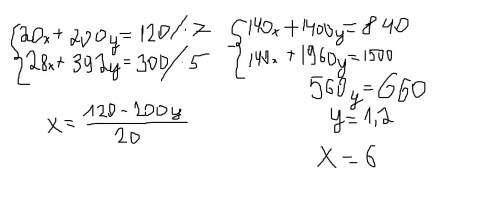 20x + 200y = 120 / · 7
28x + 392y = 300 / 5
x = \frac{120 - 200y}{20}
140x + 1400y = 840
140x + 1960y = 1500
560y = 660
y = 1,2
x = 6